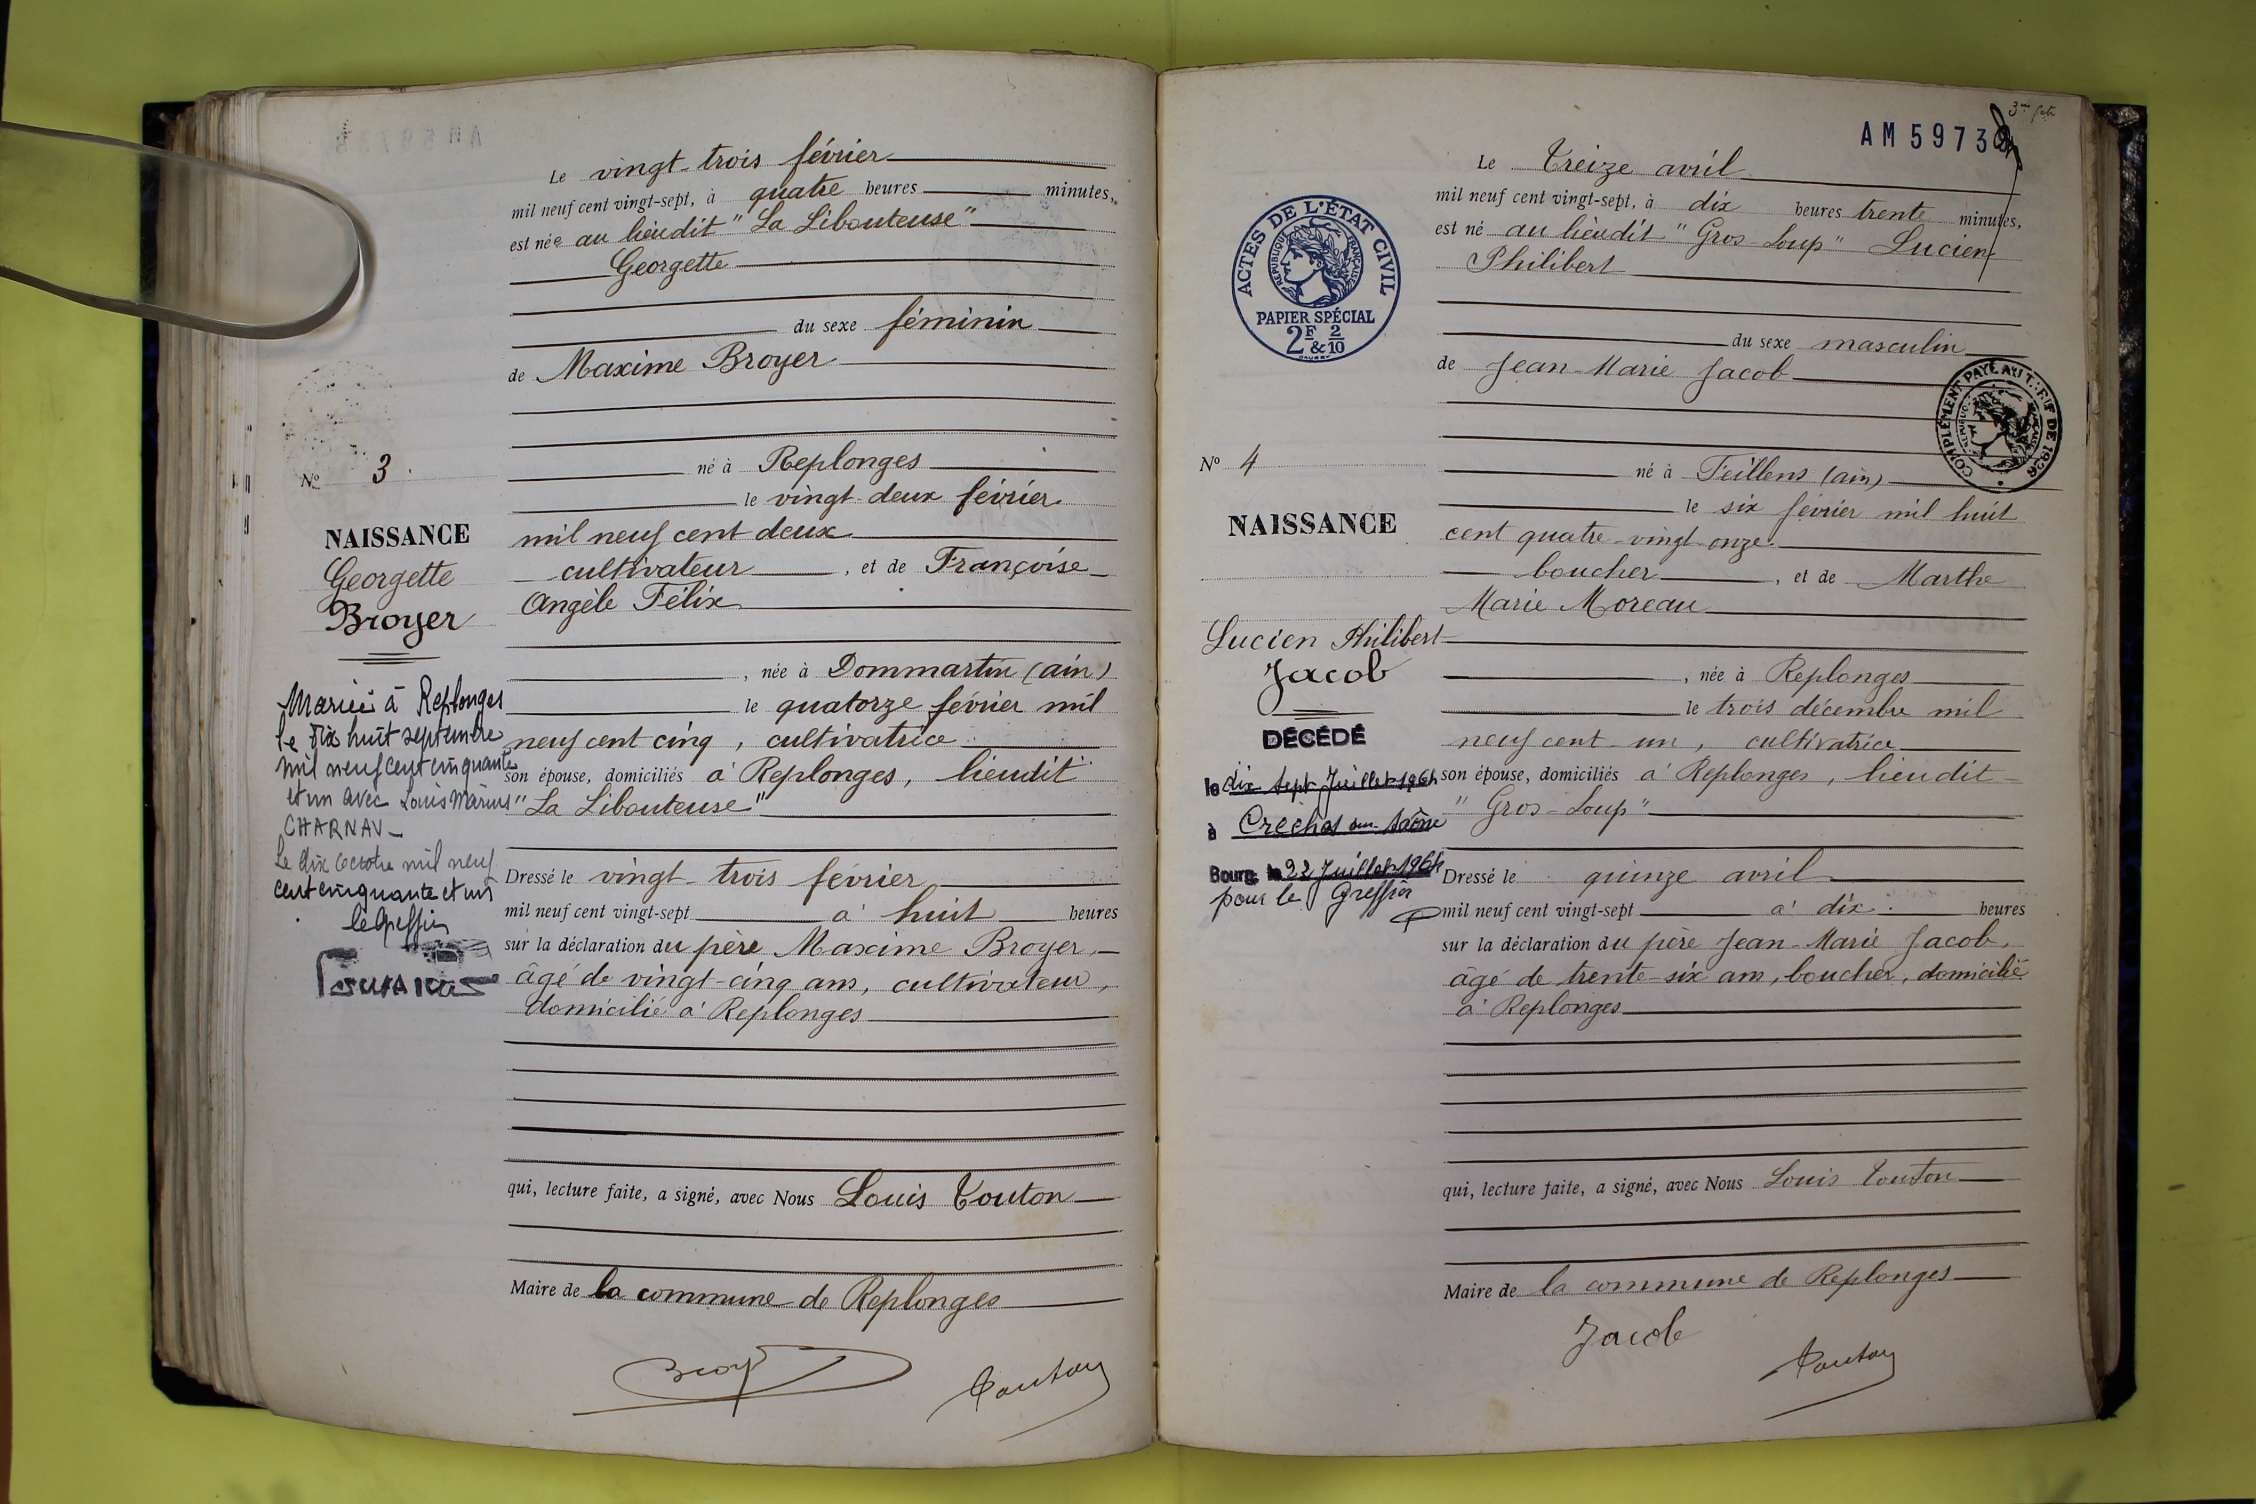 Le vingt-trois février
mil neuf cent vingt-sept, à quatre heures minutes,
est née au lieudit "La Libouteuse"
Georgette
du sexe féminin
de Maxime Broyer
né à Replonges
le vingt-deux février
mil neuf cent deux
cultivateur, et de Françoise
Angèle Félix
, née à Dommartin (ain)
le quatorze février mil
neuf cent cinq, cultivatrice
son épouse, domiciliés à Replonges, lieudit
"La Libouteuse"
Dressé le vingt-trois février
mil neuf cent vingt-sept à huit heures
sur la déclaration du père Maxime Broyer,
âgé de vingt-cinq ans, cultivateur,
domicilié à Replonges
qui, lecture faite, a signé, avec Nous Louis Touton
Maire de la commune de Replonges
Broyer
Touton
No 3
NAISSANCE
Georgette
Broyer
Mariée à Replonges
le Dix huit septembre
mil neuf cent cinquante
et un avec Louis Marius
CHARNAY
Le dix octobre mil neuf
cent cinquante et un
le Greffier
AM 5973
3me
Le Treize avril
mil neuf cent vingt-sept, à dix heures trente minutes,
est né au lieudit "Gros-Loup" Lucien
Philibert
du sexe masculin
de Jean-Marie Jacob
né à Feillens (ain)
le six février mil huit
cent quatre-vingt-onze
boucher, et de Marthe
Marie Moreau
, née à Replonges
le trois décembre mil
neuf cent un, cultivatrice
son épouse, domiciliés à Replonges, lieudit
"Gros-Loup"
Dressé le quinze avril
mil neuf cent vingt-sept à dix heures
sur la déclaration du père Jean-Marie Jacob,
âgé de trente-six ans, boucher, domicilié
à Replonges
qui, lecture faite, a signé, avec Nous Louis Touton
Maire de la commune de Replonges
Jacob
Touton
ACTES DE L'ÉTAT CIVIL
RÉPUBLIQUE FRANÇAISE
PAPIER SPÉCIAL
2F & 2/10
COMPLÉMENT PAYÉ AU TARIF DE 1926
No 4
NAISSANCE
Lucien Philibert
Jacob
DÉCÉDÉ
le dix sept Juillet 1964
à Crèches sur Saône
Bourg le 22 Juillet 1964
pour le Greffier